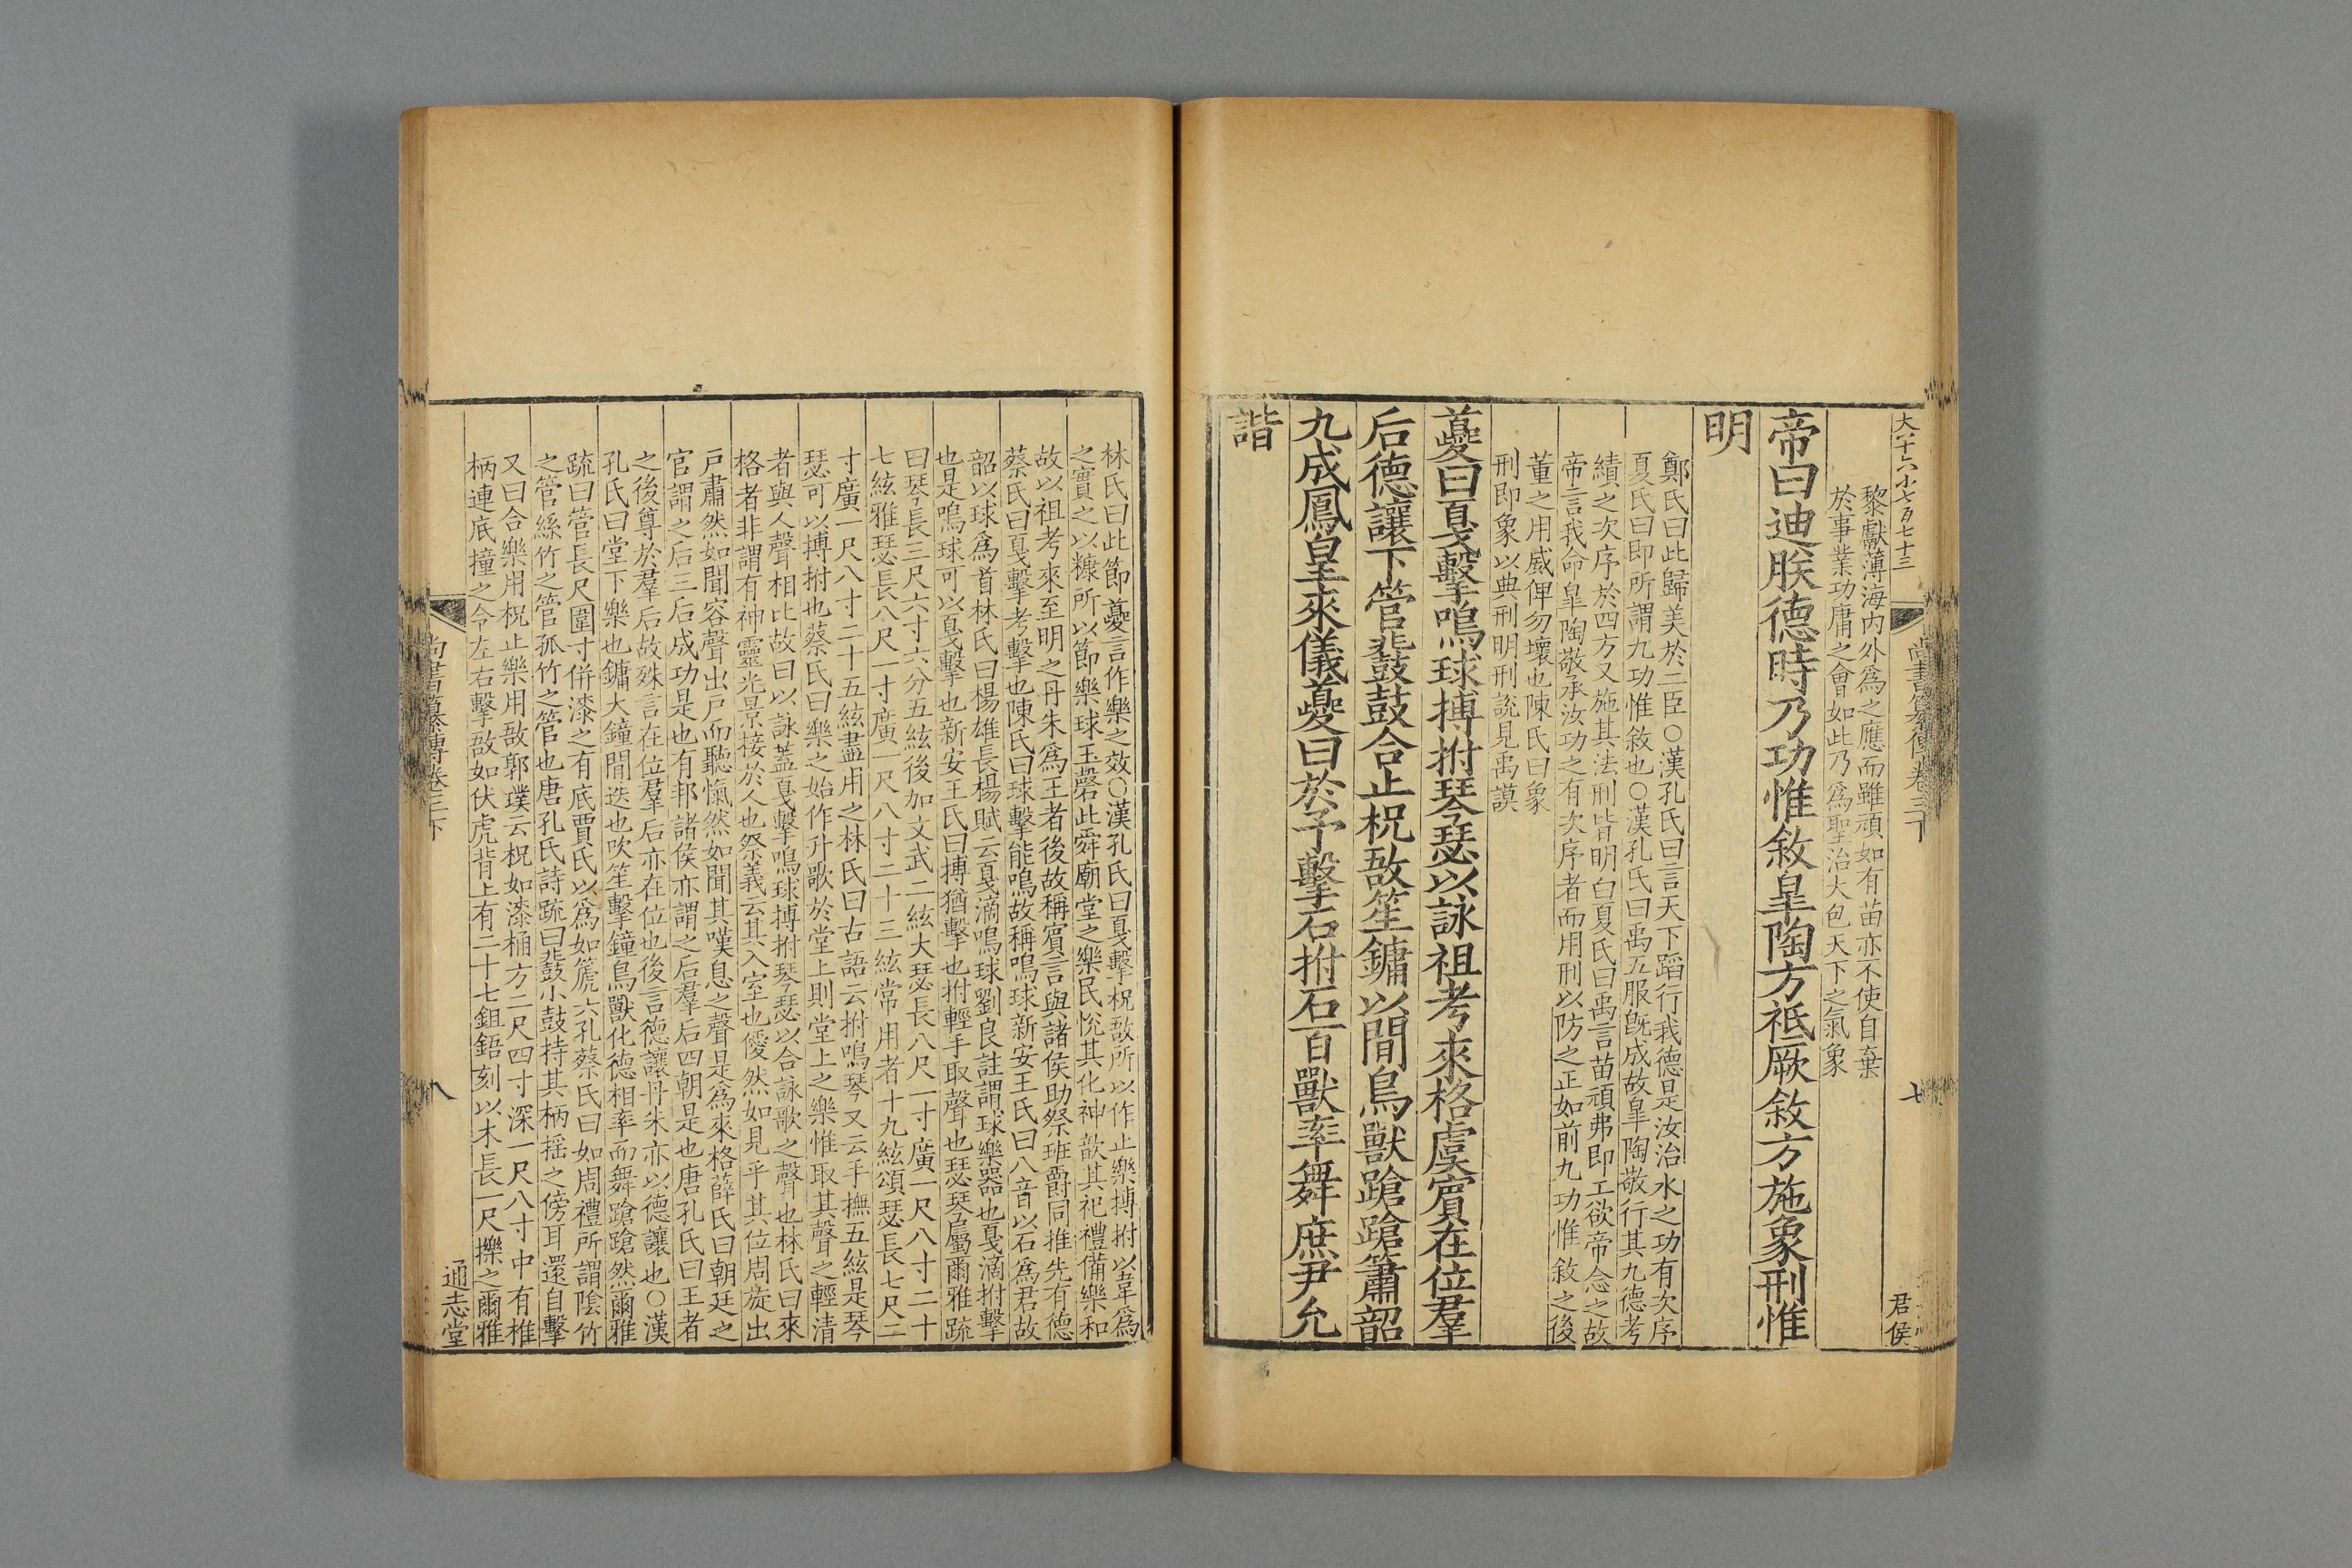 大八十六小七百七十三
尚書纂傳卷三下
七
君侯
黎獻薄海內外爲之應而雖頑如有苗亦不使自棄
於事業功庸之會如此乃爲聖治大包天下之氣象
帝曰迪朕德時乃功惟敘皐陶方祗厥敘方施象刑惟
明
鄭氏曰此歸美於二臣○漢孔氏曰言天下蹈行我德是汝治水之功有次序
夏氏曰即所謂九功惟敘也○漢孔氏曰禹五服旣成故皐陶敬行其九德考
績之次序於四方又施其法刑皆明白夏氏曰禹言苗頑弗即工欲帝念之故
帝言我命皐陶敬承汝功之有次序者而用刑以防之正如前九功惟敘之後
董之用威俾勿壞也陳氏曰象
刑即象以典刑明刑說見禹謨
夔曰戛擊鳴球搏拊琴瑟以詠祖考來格虞賓在位羣
后德讓下管鼗鼓合止柷敔笙鏞以間鳥獸蹌蹌簫韶
九成鳳皇來儀夔曰於予擊石拊石百獸率舞庶尹允
諧
林氏曰此節夔言作樂之效○漢孔氏曰戛擊柷敔所以作止樂搏拊以韋爲
之實之以糠所以節樂球玉磬此舜廟堂之樂民悅其化神歆其祀禮備樂和
故以祖考來至明之丹朱爲王者後故稱賓言與諸侯助祭班爵同推先有德
蔡氏曰戛擊考擊也陳氏曰球擊能鳴故稱鳴球新安王氏曰八音以石爲君故
韶以球爲首林氏曰楊雄長楊賦云戛滴鳴球劉良註謂球樂器也戛滴拊擊
也是鳴球可以戛擊也新安王氏曰搏猶擊也拊輕手取聲也瑟琴屬爾雅疏
曰琴長三尺六寸六分五絃後加文武二絃大瑟長八尺一寸廣一尺八寸二十
七絃雅瑟長八尺一寸廣一尺八寸二十三絃常用者十九絃頌瑟長七尺二
寸廣一尺八寸二十五絃盡用之林氏曰古語云拊鳴琴又云手撫五絃是琴
瑟可以搏拊也蔡氏曰樂之始作升歌於堂上則堂上之樂惟取其聲之輕清
者與人聲相比故曰以詠蓋戛擊鳴球搏拊琴瑟以合詠歌之聲也林氏曰來
格者非謂有神靈光景接於人也祭義云其入室也僾然如見乎其位周旋出
戶肅然如聞容聲出戶而聽愾然如聞其嘆息之聲是爲來格薛氏曰朝廷之
官謂之后三后成功是也有邦諸侯亦謂之后羣后四朝是也唐孔氏曰王者
之後尊於羣后故殊言在位羣后亦在位也後言德讓丹朱亦以德讓也○漢
孔氏曰堂下樂也鏞大鐘間迭也吹笙擊鐘鳥獸化德相率而舞蹌蹌然爾雅
疏曰管長尺圍寸併漆之有底賈氏以爲如篪六孔蔡氏曰如周禮所謂陰竹
之管絲竹之管孤竹之管也唐孔氏詩疏曰鼗小鼓持其柄搖之傍耳還自擊
又曰合樂用柷止樂用敔郭璞云柷如漆桶方二尺四寸深一尺八寸中有椎
柄連底撞之令左右擊敔如伏虎背上有二十七鉏鋙刻以木長一尺擽之爾雅
尚書纂傳卷三下
八
通志堂